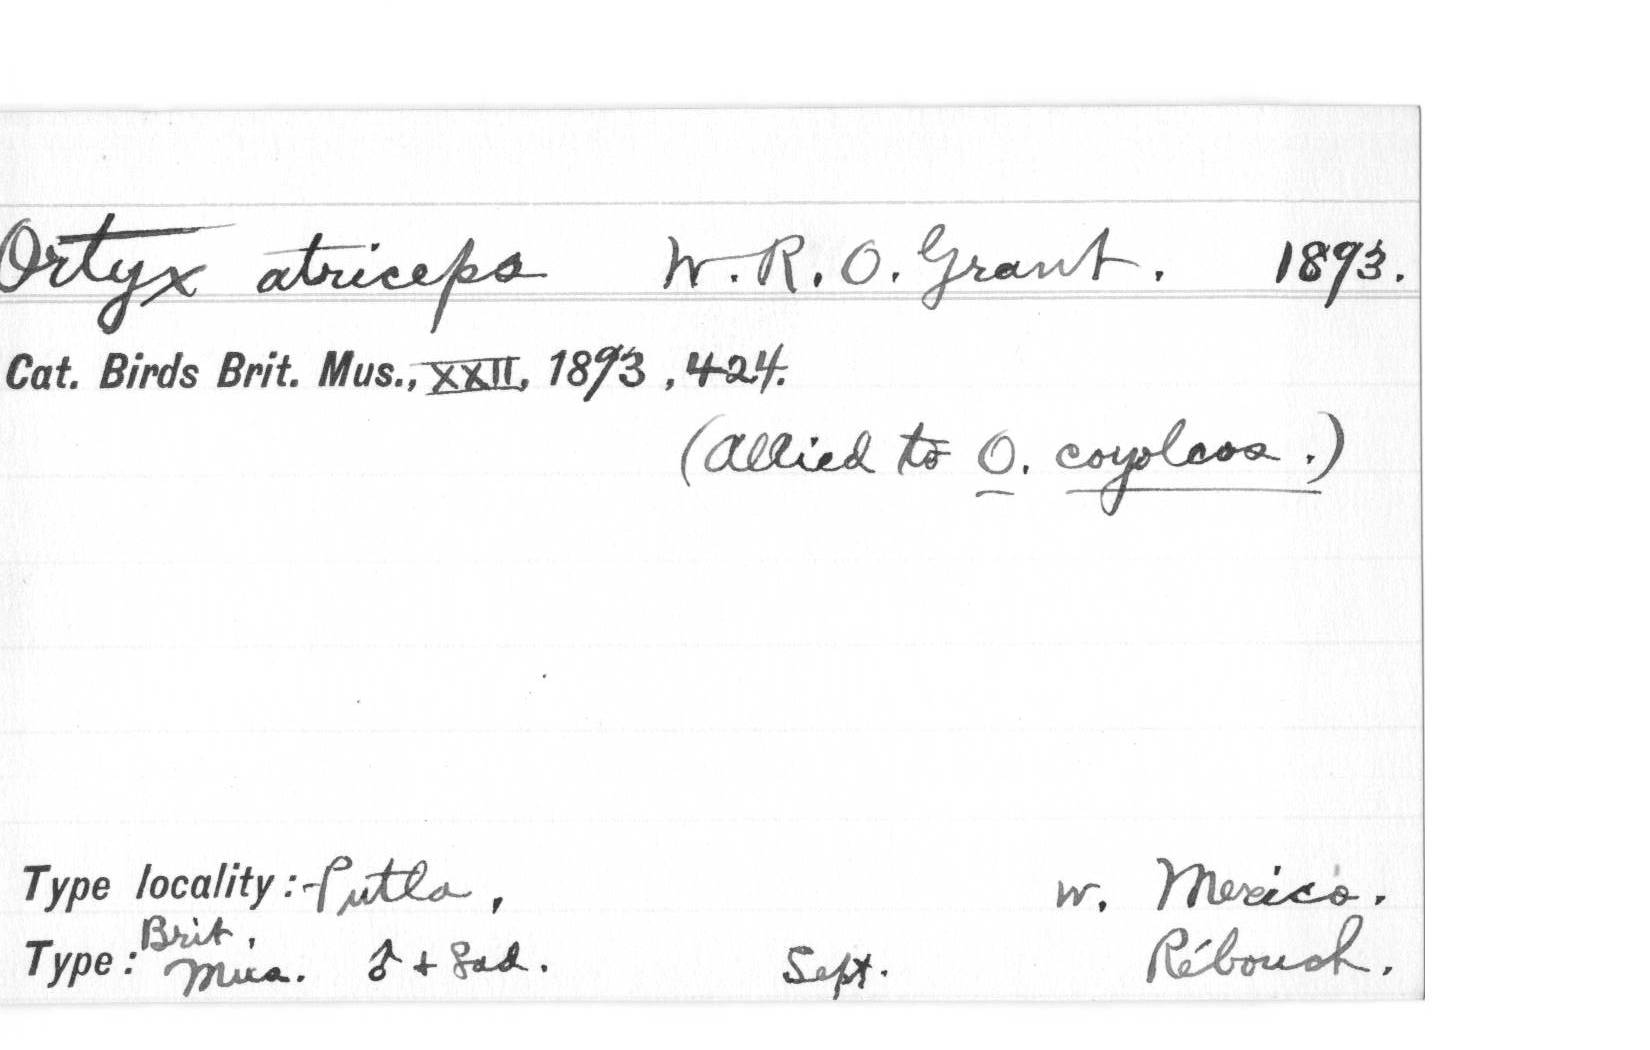 Ortyx atriceps W. R. O. Grant. 1893.
Cat. Birds Brit. Mus., XXII, 1893, 424.
(Allied to O. coyolcos.)
Type locality: Putla, W. Mexico.
Type: Brit. Mus. ♂ + ♀ ad. Sept. Rébouch.